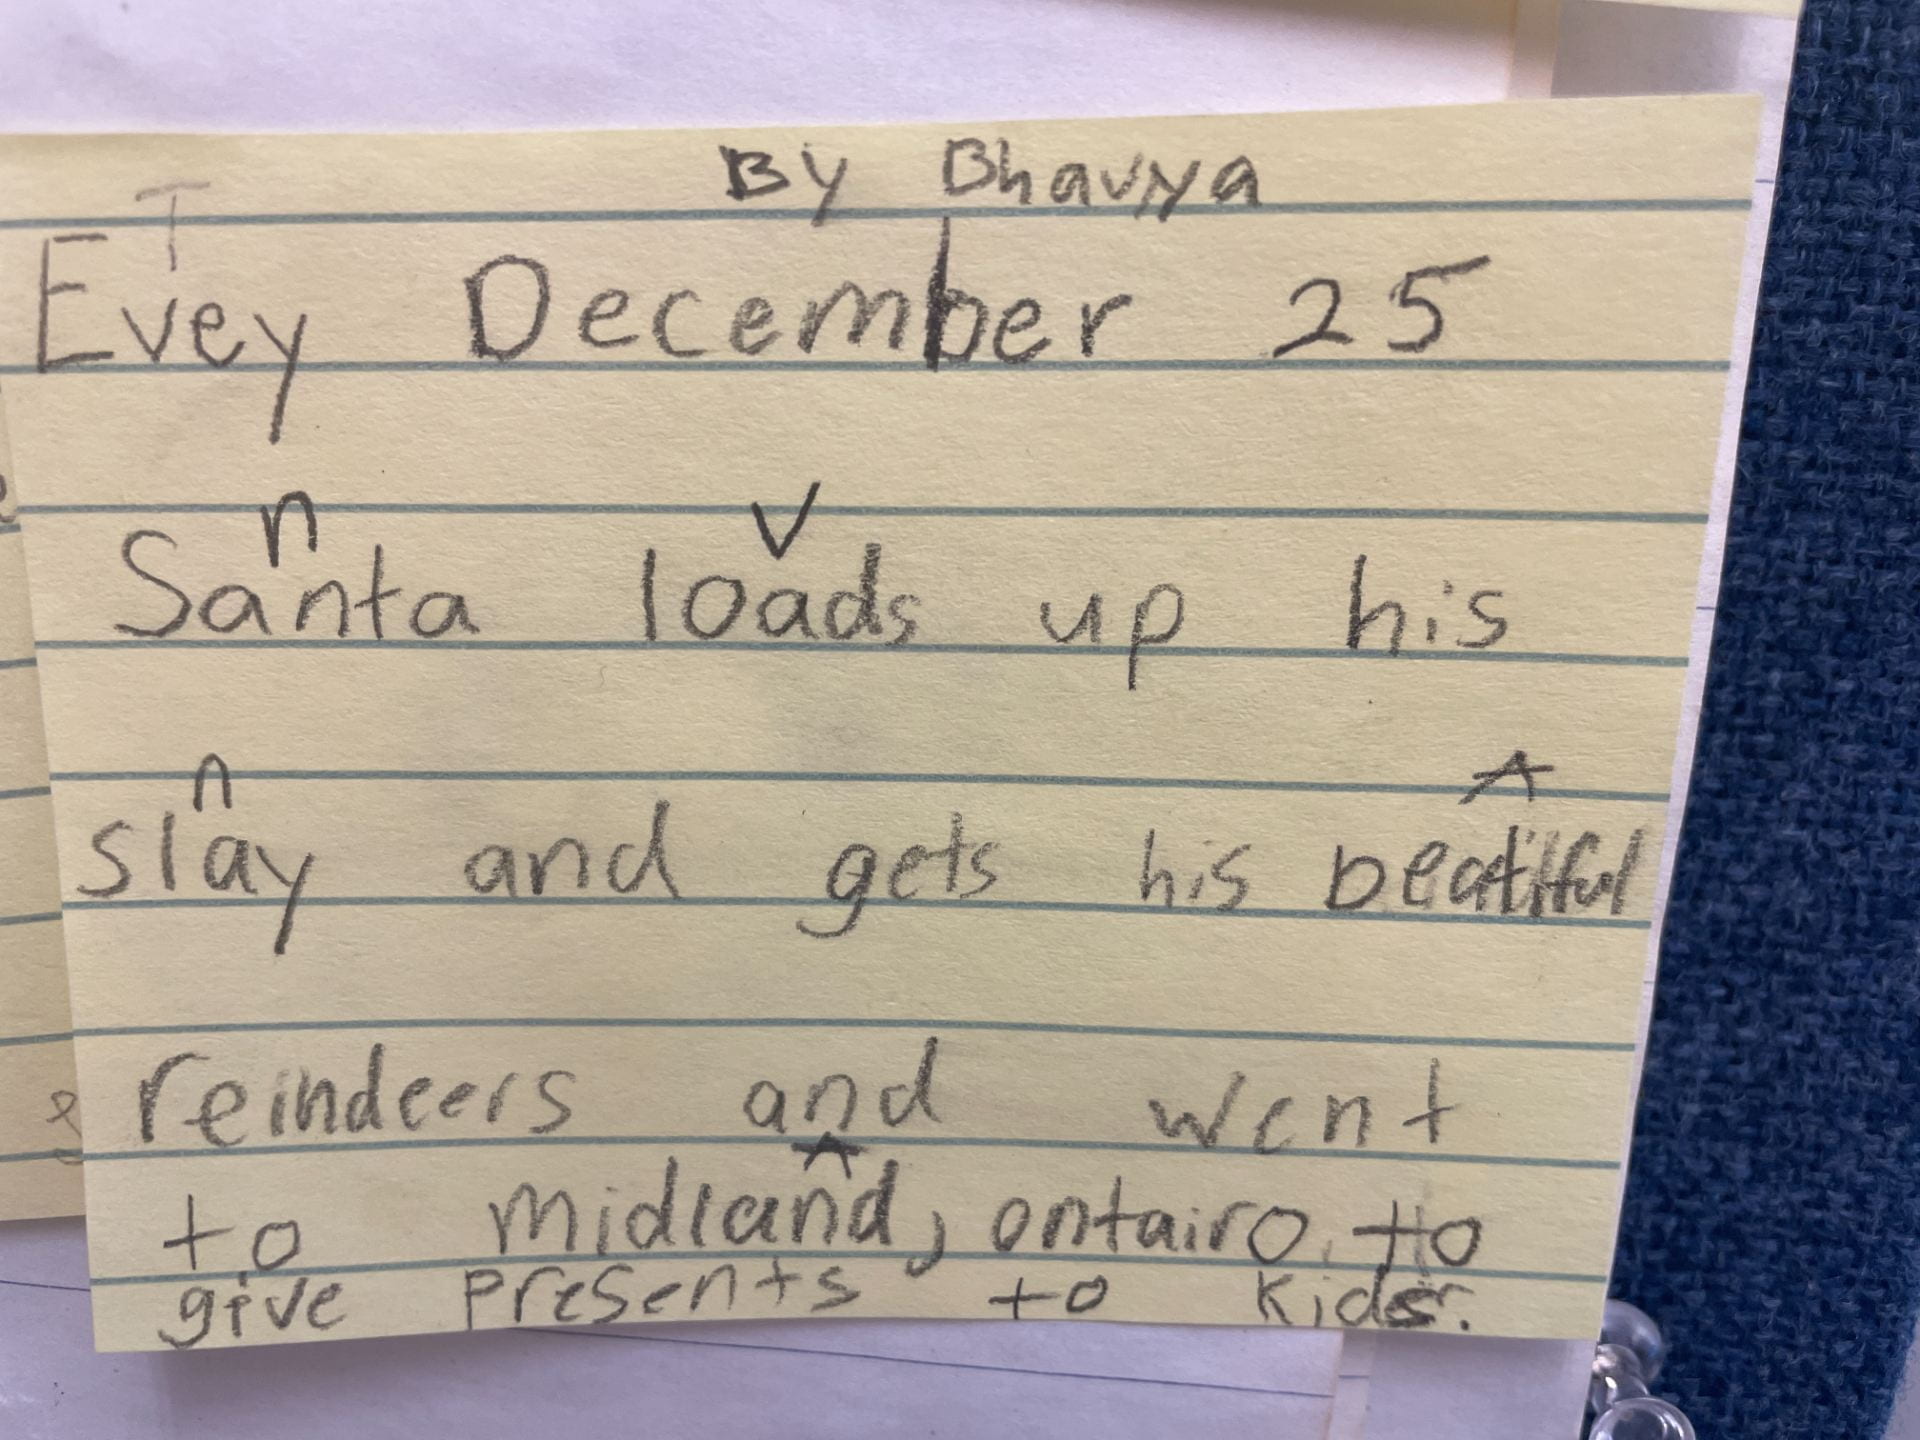 By Bhavya
T
Evey December 25
n v
Santa loads up his
n
slay and gets his beatiful
reindeers and went
to midland, ontairo to
give presents to kids.